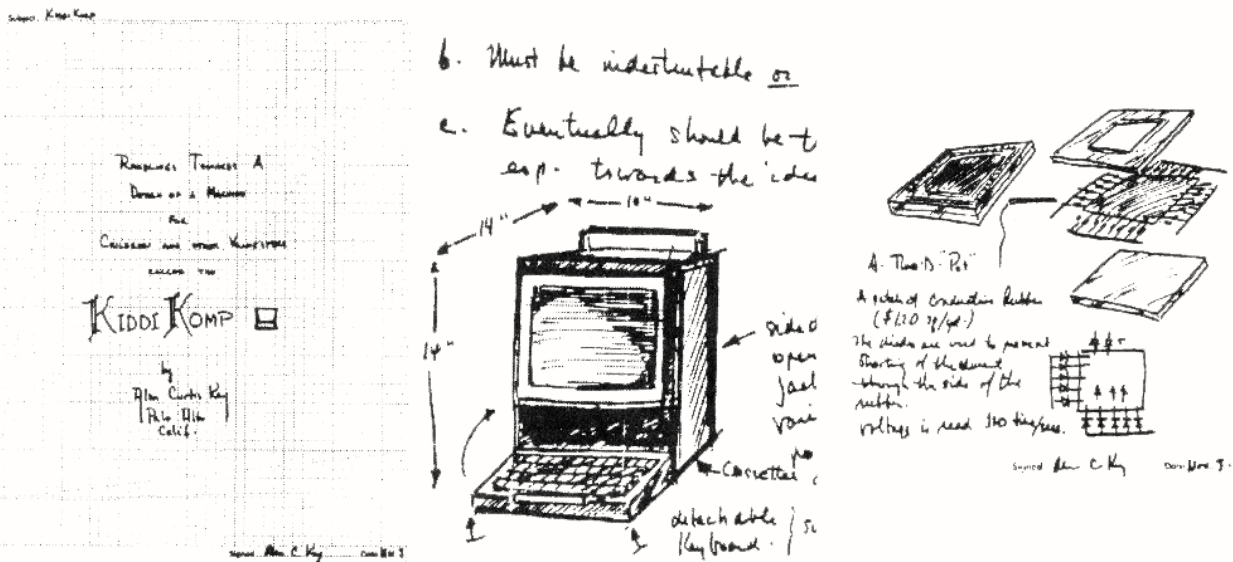 Subject KiddiKomp
Ramblings Towards A
Design of a Machine
For
Children and other
called the
KIDDI KOMP
by
Alan Curtis Kay
Palo Alto
Calif.
Signed Alan C. Kay Date Nov 3
b. Must be indestructable or
c. Eventually should be t
esp. towards the idea
14"
10"
14"
side o
open
jack
vari
po
Cassettes
detachable
Keyboard.
A Two-D "Pot"
A patch of conductive Rubber
($1.20 sq/yd.)
The diodes are used to prevent
shorting of the current
through the side of the
rubber.
voltage is read times/sec.
Signed Alan C. Kay Date Nov. 3.